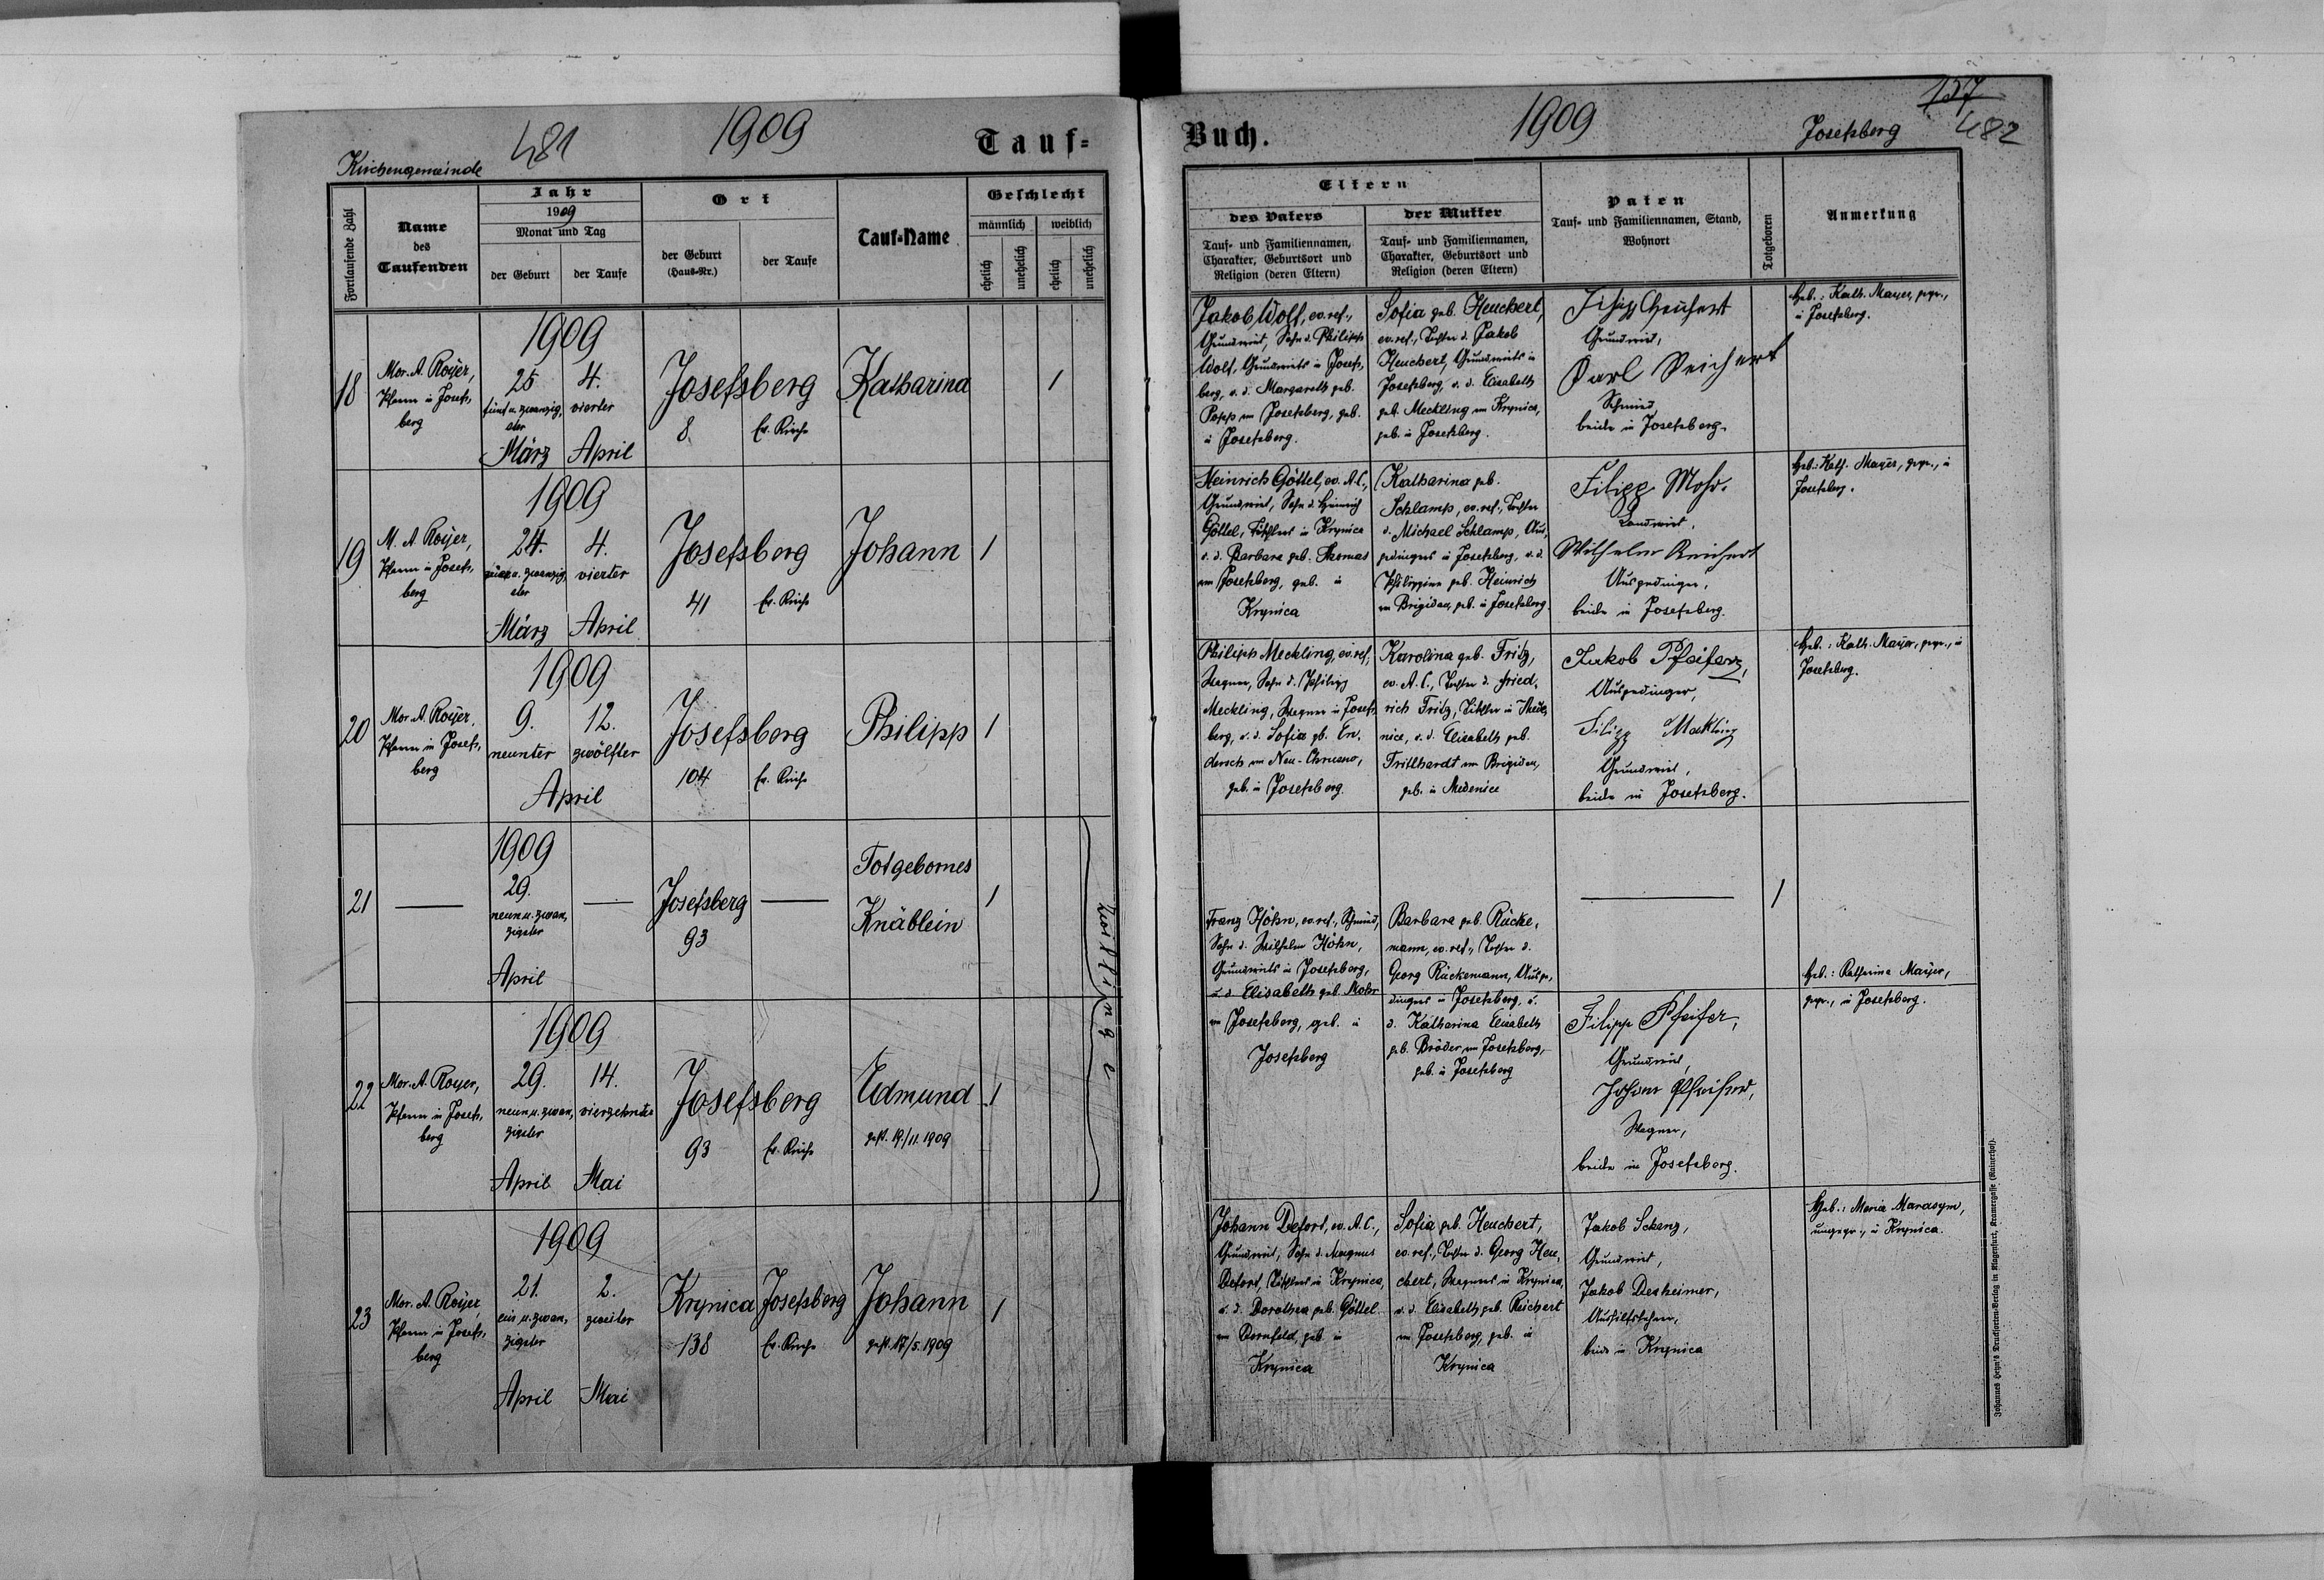 481
1909
Tauf-
Kirchengemeinde
Fortlaufende Zahl
Name
des
Taufenden
Jahr
1909
Monat und Tag
der Geburt
der Taufe
Ort
der Geburt
(Haus-Nr.)
der Taufe
Tauf-Name
Geschlecht
männlich
weiblich
ehelich
unehelich
ehelich
unehelich
18
Mor. A. Royer,
Pfarrer in Josefs,
berg
1909
25
fünf u. zwanzig,
ster
März
4.
vierter
April
Josefsberg
8
Ev. Kirche
Katharina
1
19
M. A. Royer,
Pfarrer in Josefs,
berg
1909
24.
u. zwanzig,
ster
März
4.
vierter
April
Josefsberg
41
Ev. Kirche
Johann
1
20
Mor. A. Royer,
Pfarrer in Josefs,
berg
1909
9.
neunter
12.
zwölfter
April
Josefsberg
104
Ev. Kirche
Philipp
1
21
1909
29.
neun u. zwan,
zigster
April
Josefsberg
93
Totgebornes
Knäblein
1
Zwillinge
22
Mor. A. Royer,
Pfarrer in Josefs,
berg
1909
29.
neun u. zwan,
zigster
April
14.
vierzehnter
Mai
Josefsberg
93
Ev. Kirche
Edmund
gest. 19./11. 1909
1
23
Mor. A. Royer
Pfarrer in Josefs,
berg
1909
21.
ein u. zwan,
zigster
April
2.
zweiter
Mai
Krynica
138
Josefsberg
Ev. Kirche
Johann
gest. 17/5. 1909
1
Buch.
1909
Josefsberg
157
482
Eltern
des Vaters
Tauf- und Familiennamen,
Charakter, Geburtsort und
Religion (deren Eltern)
der Mutter
Tauf- und Familiennamen,
Charakter, Geburtsort und
Religion (deren Eltern)
Paten
Tauf- und Familiennamen, Stand,
Wohnort
Totgeboren
Anmerkung
Jakob Wolf, ev. ref.,
Grundwirt, Sohn d. Philipp
Wolf, Grundwirts in Josefs,
berg, u. d. Margareth geb.
Popp aus Josefsberg, geb.
in Josefsberg.
Sofia geb. Heuchert,
ev. ref., Tochter d. Jakob
Heuchert, Grundwirts in
Josefsberg, u. d. Elisabeth
geb. Meckling aus Krynica,
geb. in Josefsberg.
Filipp Heuchert
Grundwirt,
Karl Reichert
Schmied
beide in Josefsberg.
Heb.: Kath. Mayer, gepr.,
in Josefsberg.
Heinrich Göttel, ev. A. C.,
Grundwirt, Sohn d. Heinrich
Göttel, in Krynica
u. d. Barbara geb. Thomas
aus Josefsberg, geb. in
Krynica
Katharina geb.
Schlamp, ev. ref., Tochter
d. Michael Schlamp, Aus,
gedingers in Josefsberg, u. d.
Philippine geb. Heinrich
aus Brigidau, geb. in Josefsberg.
Filipp Mohr.
Landwirt,
Wilhelm Reichert
Ausgedinger,
beide in Josefsberg.
Heb.: Kath. Mayer, gepr., in
Josefsberg.
Philipp Meckling, ev. ref.,
Wagner, Sohn d. Philipp
Meckling, Wagner in Josefs,
berg, u. d. Sofia gb. En,
dersch aus Neu-Chrusno,
geb. in Josefsberg.
Karolina geb. Fritz,
ev. A. C., Tochter d. Fried,
rich Fritz, in Mede,
nice, u. d. Elisabeth geb.
Trillhardt aus Brigidau,
geb. in Medenice
Jakob Pfeifer,
Ausgedinger,
Filipp Meckling
Grundwirt,
beide in Josefsberg.
Heb.: Kath. Mayer, gepr., in
Josefsberg.
1
Franz Höhn, ev. ref., Schmied,
Sohn d. Wilhelm Höhn,
Grundwirts in Josefsberg,
u. d. Elisabeth geb. Mohr
aus Josefsberg, geb. in
Josefsberg
Barbara geb. Rücke,
mann, ev. ref., Tochter d.
Georg Rückemann, Ausge,
dingers in Josefsberg, u.
d. Katharina Elisabeth
geb. Bröder aus Josefsberg,
geb. in Josefsberg
Filipp Pfeifer,
Grundwirt,
Johann Pfeifer,
Wagner,
beide in Josefsberg.
Heb.: Katharina Mayer,
gepr., in Josefsberg.
Johann Deford, ev. A. C.,
Grundwirt, Sohn d. Magnus
Deford, in Krynica,
u. d. Dorothea geb. Göttel
aus Dornfeld, geb. in
Krynica
Sofia geb. Heuchert,
ev. ref., Tochter d. Georg Heu,
chert, Wagners in Krynica,
u. d. Elisabeth geb. Reichert
aus Josefsberg, geb. in
Krynica
Jakob Schanz,
Grundwirt,
Jakob Desheimer,
Aushilfslehrer,
beide in Krynica
Heb.: Maria Marasym,
ungepr., in Krynica.
Johannes Heyn's Drucksorten-Verlag in Klagenfurt, Kramergasse (Rainerhof).